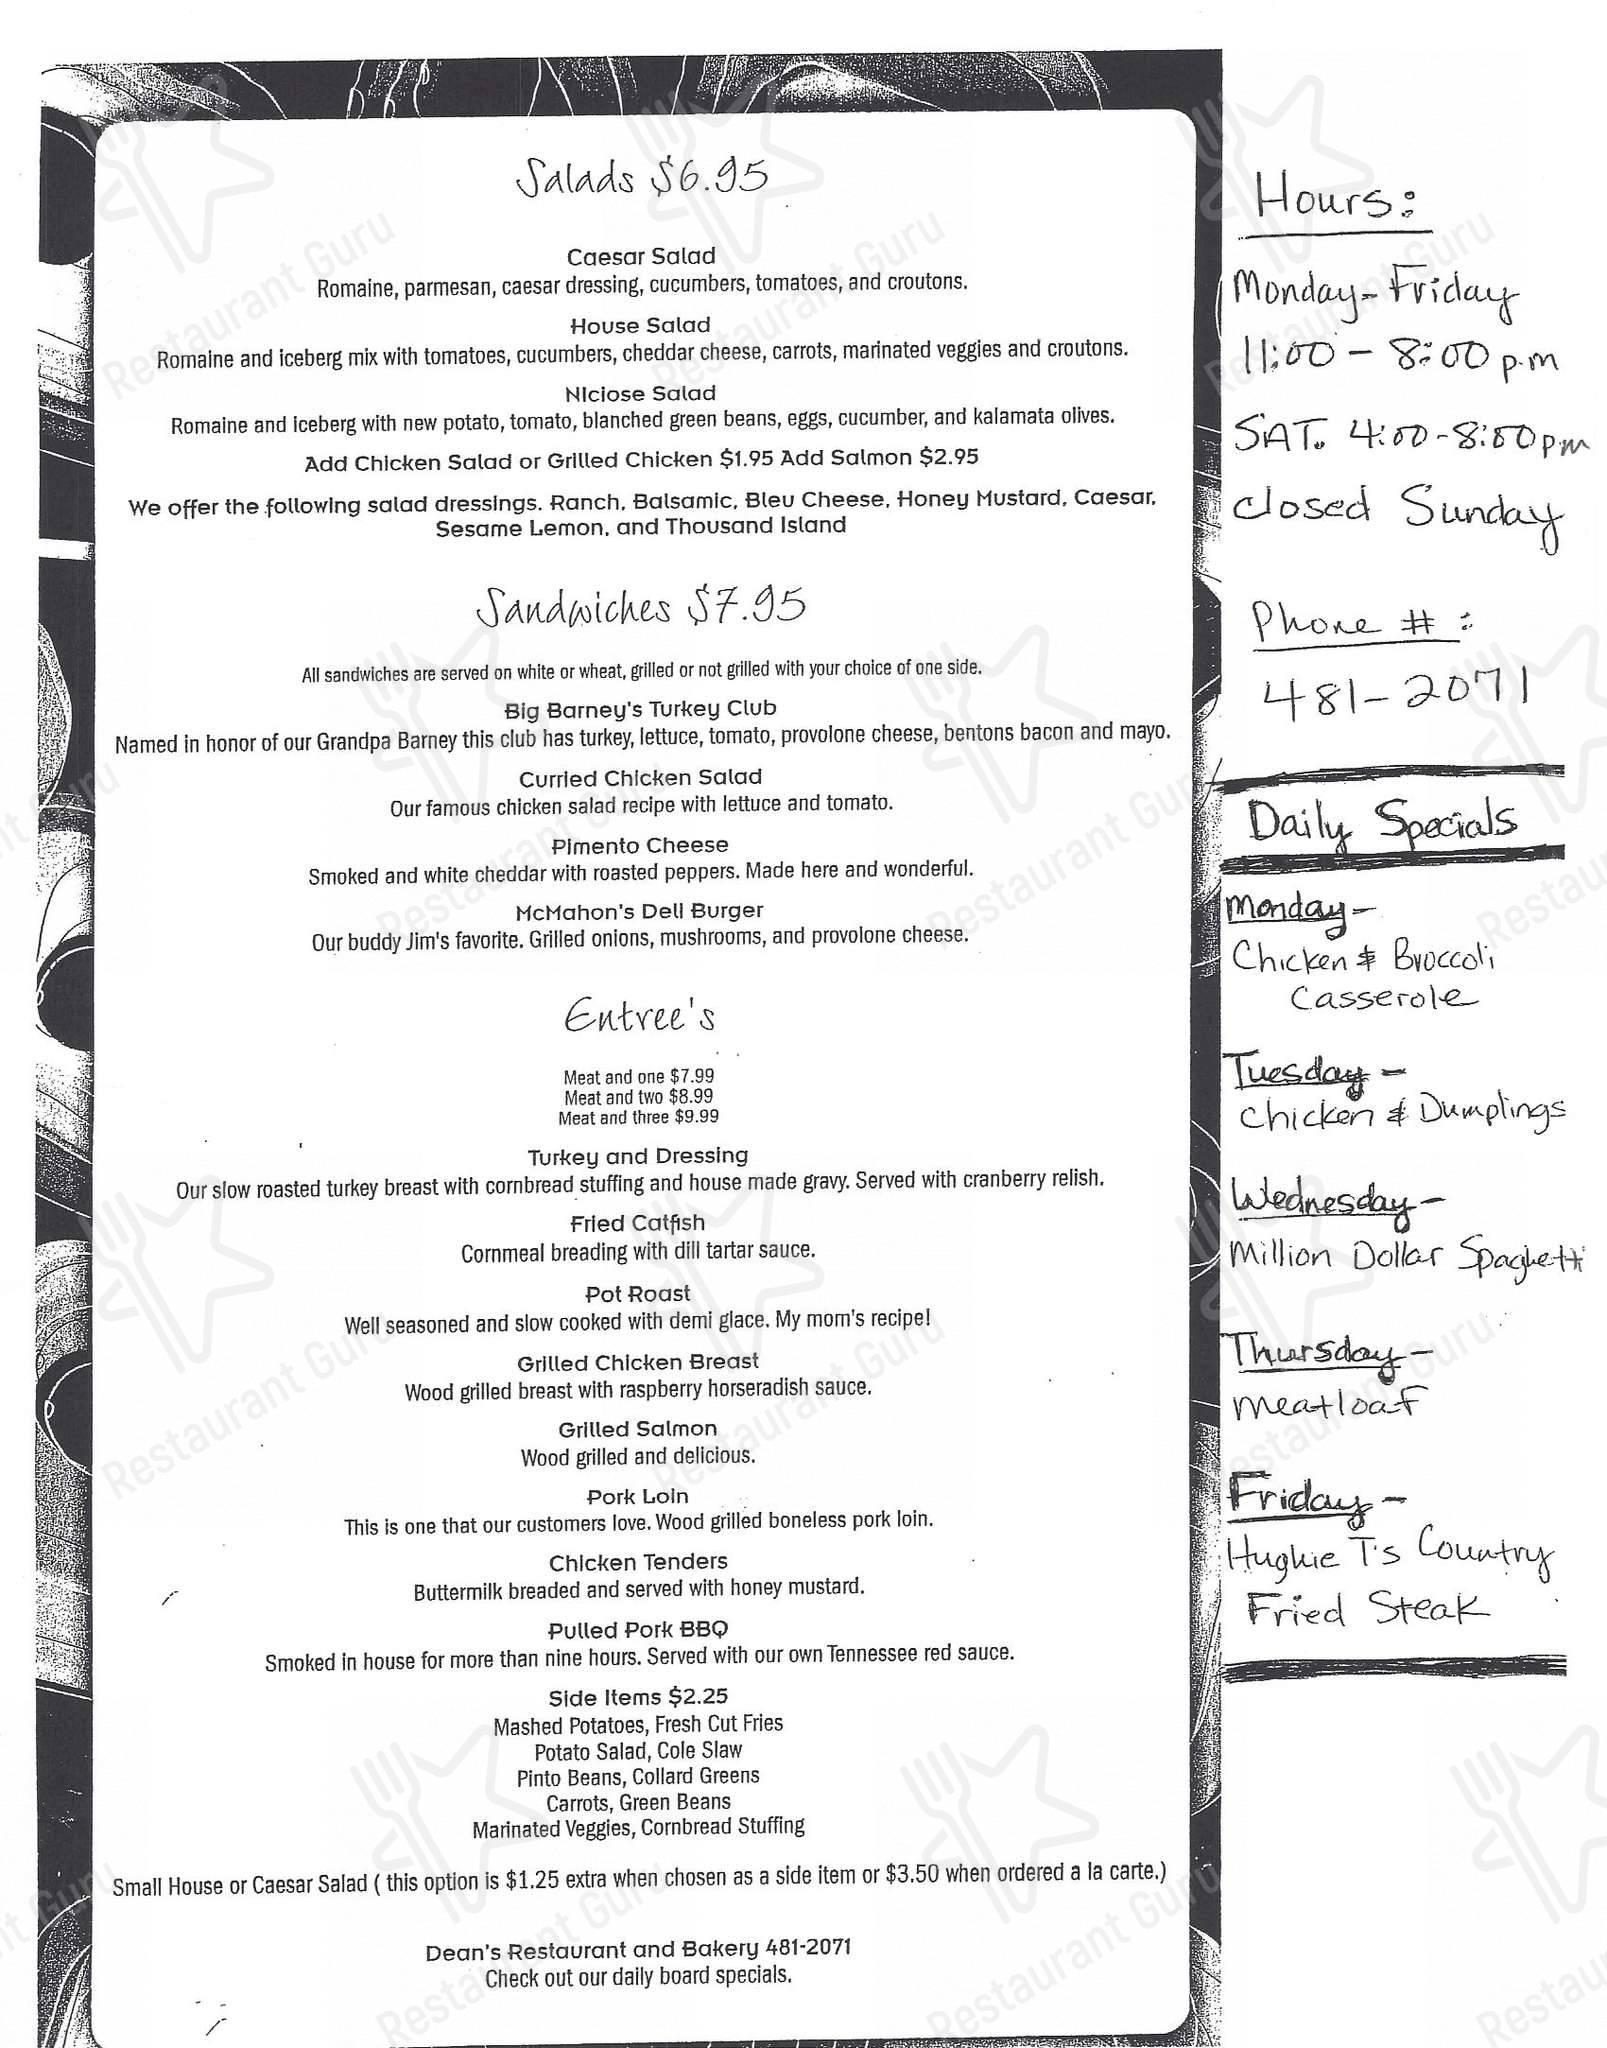 Salads $6.95
Caesar Salad
Romaine, parmesan, caesar dressing, cucumbers, tomatoes, and croutons.
House Salad
Romaine and iceberg mix with tomatoes, cucumbers, cheddar cheese, carrots, marinated veggies and croutons.
Niciose Salad
Romaine and iceberg with new potato, tomato, blanched green beans, eggs, cucumber, and kalamata olives.
Add Chicken Salad or Grilled Chicken $1.95 Add Salmon $2.95
We offer the following salad dressings. Ranch, Balsamic, Bleu Cheese, Honey Mustard, Caesar,
Sesame Lemon, and Thousand Island
Sandwiches $7.95
All sandwiches are served on white or wheat, grilled or not grilled with your choice of one side.
Big Barney's Turkey Club
Named in honor of our Grandpa Barney this club has turkey, lettuce, tomato, provolone cheese, bentons bacon and mayo.
Curried Chicken Salad
Our famous chicken salad recipe with lettuce and tomato.
Pimento Cheese
Smoked and white cheddar with roasted peppers. Made here and wonderful.
McMahon's Deli Burger
Our buddy Jim's favorite. Grilled onions, mushrooms, and provolone cheese.
Entree's
Meat and one $7.99
Meat and two $8.99
Meat and three $9.99
Turkey and Dressing
Our slow roasted turkey breast with cornbread stuffing and house made gravy. Served with cranberry relish.
Fried Catfish
Cornmeal breading with dill tartar sauce.
Pot Roast
Well seasoned and slow cooked with demi glace. My mom's recipe!
Grilled Chicken Breast
Wood grilled breast with raspberry horseradish sauce.
Grilled Salmon
Wood grilled and delicious.
Pork Loin
This is one that our customers love. Wood grilled boneless pork loin.
Chicken Tenders
Buttermilk breaded and served with honey mustard.
Pulled Pork BBQ
Smoked in house for more than nine hours. Served with our own Tennessee red sauce.
Side Items $2.25
Mashed Potatoes, Fresh Cut Fries
Potato Salad, Cole Slaw
Pinto Beans, Collard Greens
Carrots, Green Beans
Marinated Veggies, Cornbread Stuffing
Small House or Caesar Salad ( this option is $1.25 extra when chosen as a side item or $3.50 when ordered a la carte.)
Dean's Restaurant and Bakery 481-2071
Check out our daily board specials.
Hours:
Monday-Friday
11:00 - 8:00 p.m
SAT. 4:00-8:00pm
closed Sunday
Phone # :
481-2071
Daily Specials
Monday-
Chicken & Broccoli
Casserole
Tuesday-
Chicken & Dumplings
Wednesday-
Million Dollar Spaghetti
Thursday-
Meatloaf
Friday-
Hughie T's Country
Fried Steak
Restaurant Guru